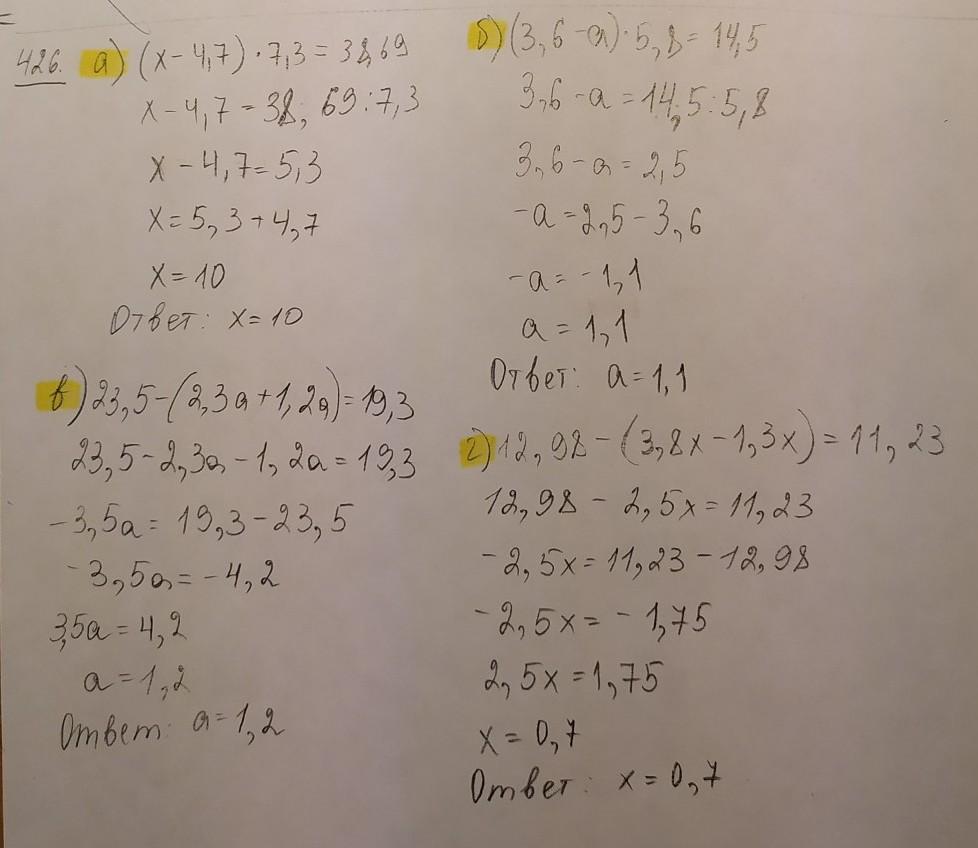 426. а) (x-4,7)·7,3=38,69
x-4,7=38,69:7,3
x-4,7=5,3
x=5,3+4,7
x=10
Ответ: x=10
б) (3,6-a)·5,8=14,5
3,6-a=14,5:5,8
3,6-a=2,5
-a=2,5-3,6
-a=-1,1
a=1,1
Ответ: a=1,1
в) 23,5-(2,3a+1,2a)=19,3
23,5-2,3a-1,2a=19,3
-3,5a=19,3-23,5
-3,5a=-4,2
3,5a=4,2
a=1,2
Ответ: a=1,2
г) 12,98-(3,8x-1,3x)=11,23
12,98-2,5x=11,23
-2,5x=11,23-12,98
-2,5x=-1,75
2,5x=1,75
x=0,7
Ответ: x=0,7